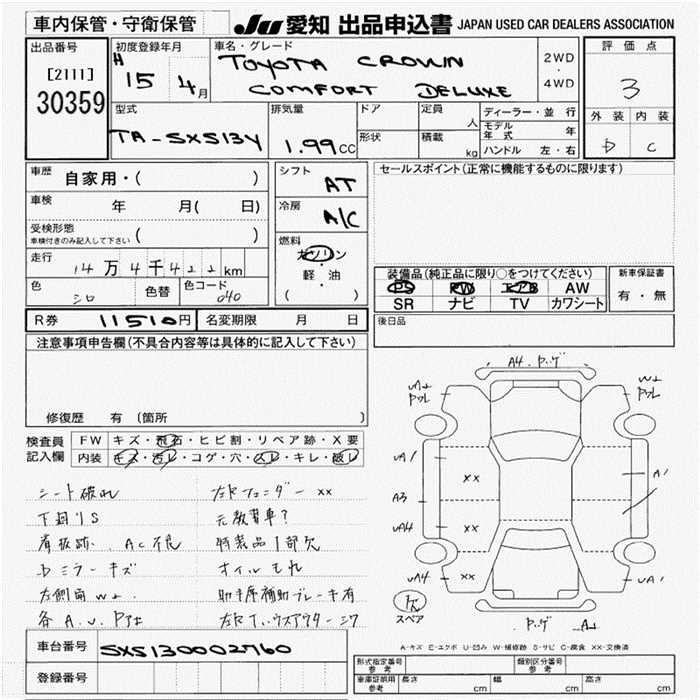 車内保管・守衛保管
JU 愛知 出品申込書 JAPAN USED CAR DEALERS ASSOCIATION
出品番号
[2111]
30359
初度登録年月
H 15 4月
車名・グレード
TOYOTA CROWN
COMFORT DELUXE
2WD
・
4WD
評価点
3
外装 内装
D C
型式
TA-SXS13Y
排気量
1.99cc
ドア
形状
定員
人
積載
kg
ディーラー・並行
モデル年式 年
ハンドル 左・右
車歴
自家用・( )
車検
年 月( 日)
受検形態
車検付きのみ記入して下さい ( )
走行
14万4千422km
色
シロ
色替
色コード
040
R券 11510円
名変期限 月 日
シフト
AT
冷房
A/C
燃料
ガソリン
軽・油
( )
セールスポイント(正常に機能するものに限ります)
装備品(純正品に限り○をつけてください)
PS PW エアB AW
SR ナビ TV カワシート
新車保証書
有・無
後日品
注意事項申告欄(不具合内容等は具体的に記入して下さい)
修復歴 有 (箇所 )
検査員
記入欄
FW キズ・飛石・ヒビ割・リペア跡・X要
内装 キズ・汚レ・コゲ・穴・スレ・キレ・破レ
シート破れ
左Rフェンダー XX
下回りS
元教習車?
看板跡、AC不良
特装品1部欠
Dミラーキズ
オイルもれ
左側面W2
助手席補助ブレーキ有
各A.U.
A4
W2
UA1
A3
UA4
UA4
XX
XX
XX
W2
A1
UA1
スペア
A-キズ E-エクボ U-凹み W-補修跡 S-サビ C-腐食 XX-交換済
車台番号
SXS130002760
登録番号
形式指定番号
参考
類別区分番号
参考
車庫証明用
参考
長さ cm
幅 cm
高さ cm